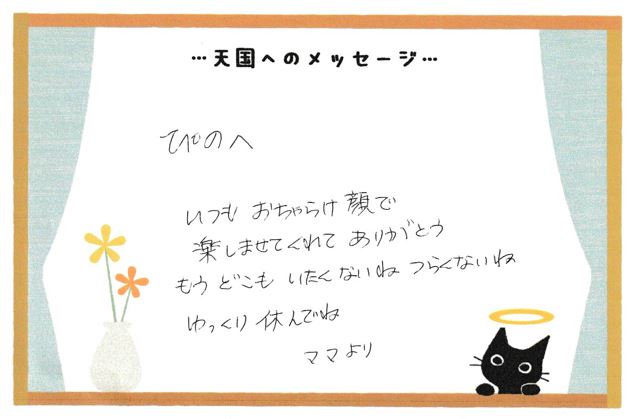 …天国へのメッセージ…
ぴのへ
いつも おちゃらけ 顔で
楽しませてくれて ありがとう
もう どこも いたくないね つらくないね
ゆっくり 休んでね
ママより